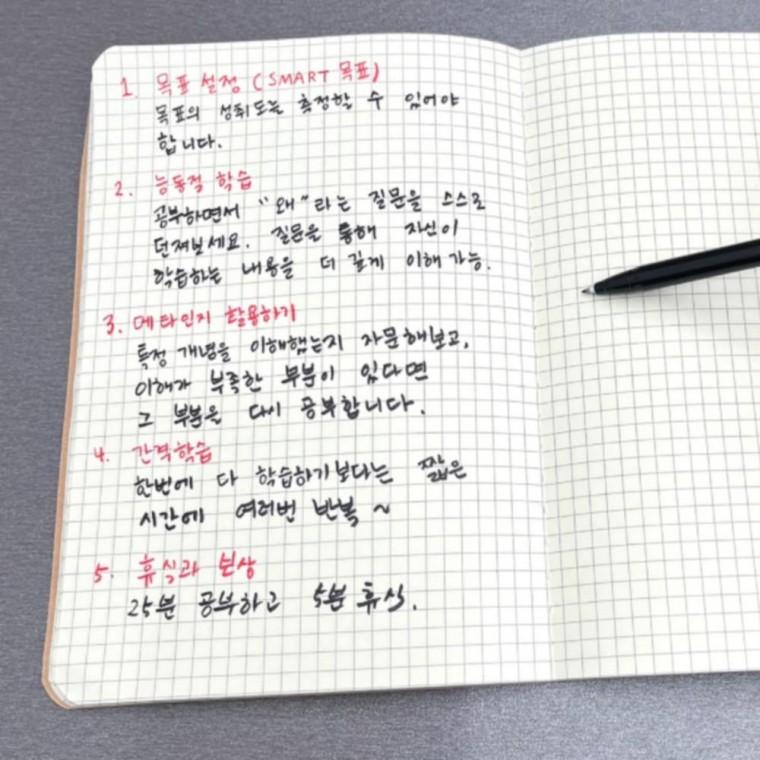 1. 목표 설정 (SMART 목표)
목표의 성취도는 측정할 수 있어야
합니다.
2. 능동적 학습
공부하면서 "왜"라는 질문을 스스로
던져보세요. 질문을 통해 자신이
학습하는 내용을 더 깊게 이해 가능.
3. 메타인지 활용하기
특정 개념을 이해했는지 자문해보고,
이해가 부족한 부분이 있다면
그 부분을 다시 공부합니다.
4. 간격학습
한번에 다 학습하기보다는 짧은
시간에 여러번 반복 ~
5. 휴식과 보상
25분 공부하고 5분 휴식.